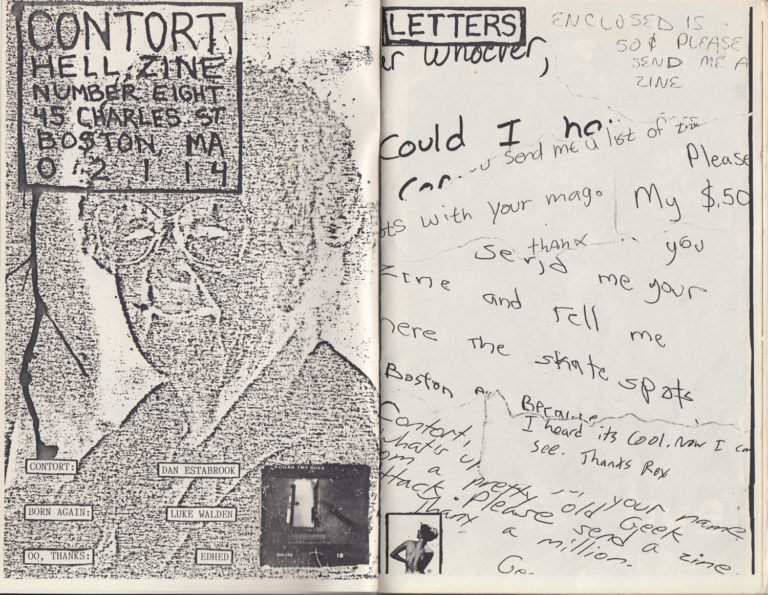 CONTORT
HELL ZINE
NUMBER EIGHT
45 CHARLES ST
BOSTON, MA
02114
CONTORT:
DAN ESTABROOK
BORN AGAIN:
LUKE WALDEN
OO, THANKS:
EDHED
KODAK TMY 5053
10
LETTERS
ENCLOSED IS
50¢ PLEASE
SEND ME A
ZINE
r whoever,
Could I
send me a list of
Please
ots with your mag.
My $.50
thanx you
Send me your
zine and tell me
here the skate spots
Boston
Because
I heard its cool. Now I can
see. Thanks Rox
Contort,
what's up your name
om a pretty old Geek
ttack. Please send a zine.
Thanx a million.